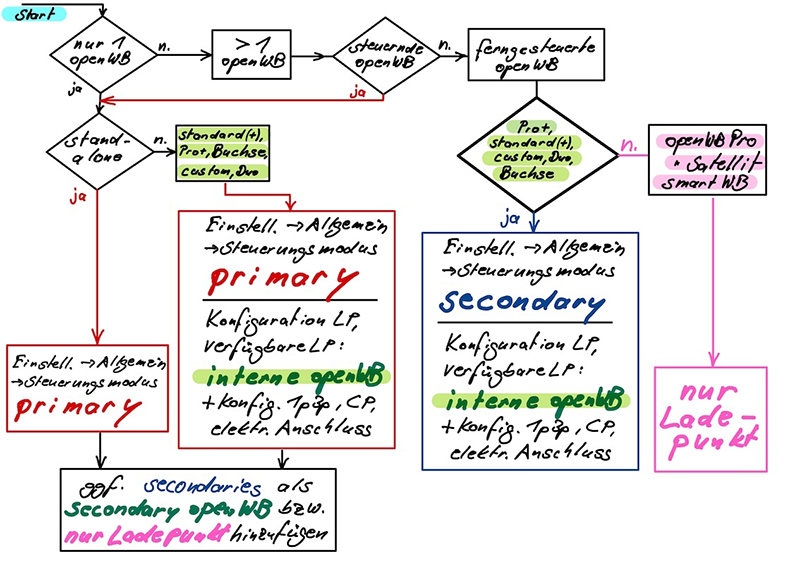 Start
nur 1
openWB
n.
ja
> 1
openWB
steuernde
openWB
n.
ja
ferngesteuerte
openWB
stand-
alone
n.
ja
standard(+),
Pro+, Buchse,
custom, Duo
Pro+,
standard(+),
custom, Duo,
Buchse
n.
ja
openWB Pro
" Satellit
smartWB
Einstell. → Allgemein
→ Steuerungsmodus
primary
Einstell. → Allgemein
→ Steuerungsmodus
primary
Konfiguration LP,
verfügbare LP:
interne openWB
+ Konfig. 1p3p, CP,
elektr. Anschluss
Einstell. → Allgemein
→ Steuerungsmodus
secondary
Konfiguration LP,
verfügbare LP:
interne openWB
+ Konfig. 1p3p, CP,
elektr. Anschluss
nur
Lade-
punkt
ggf. secondaries als
secondary openWB bzw.
nur Ladepunkt hinzufügen